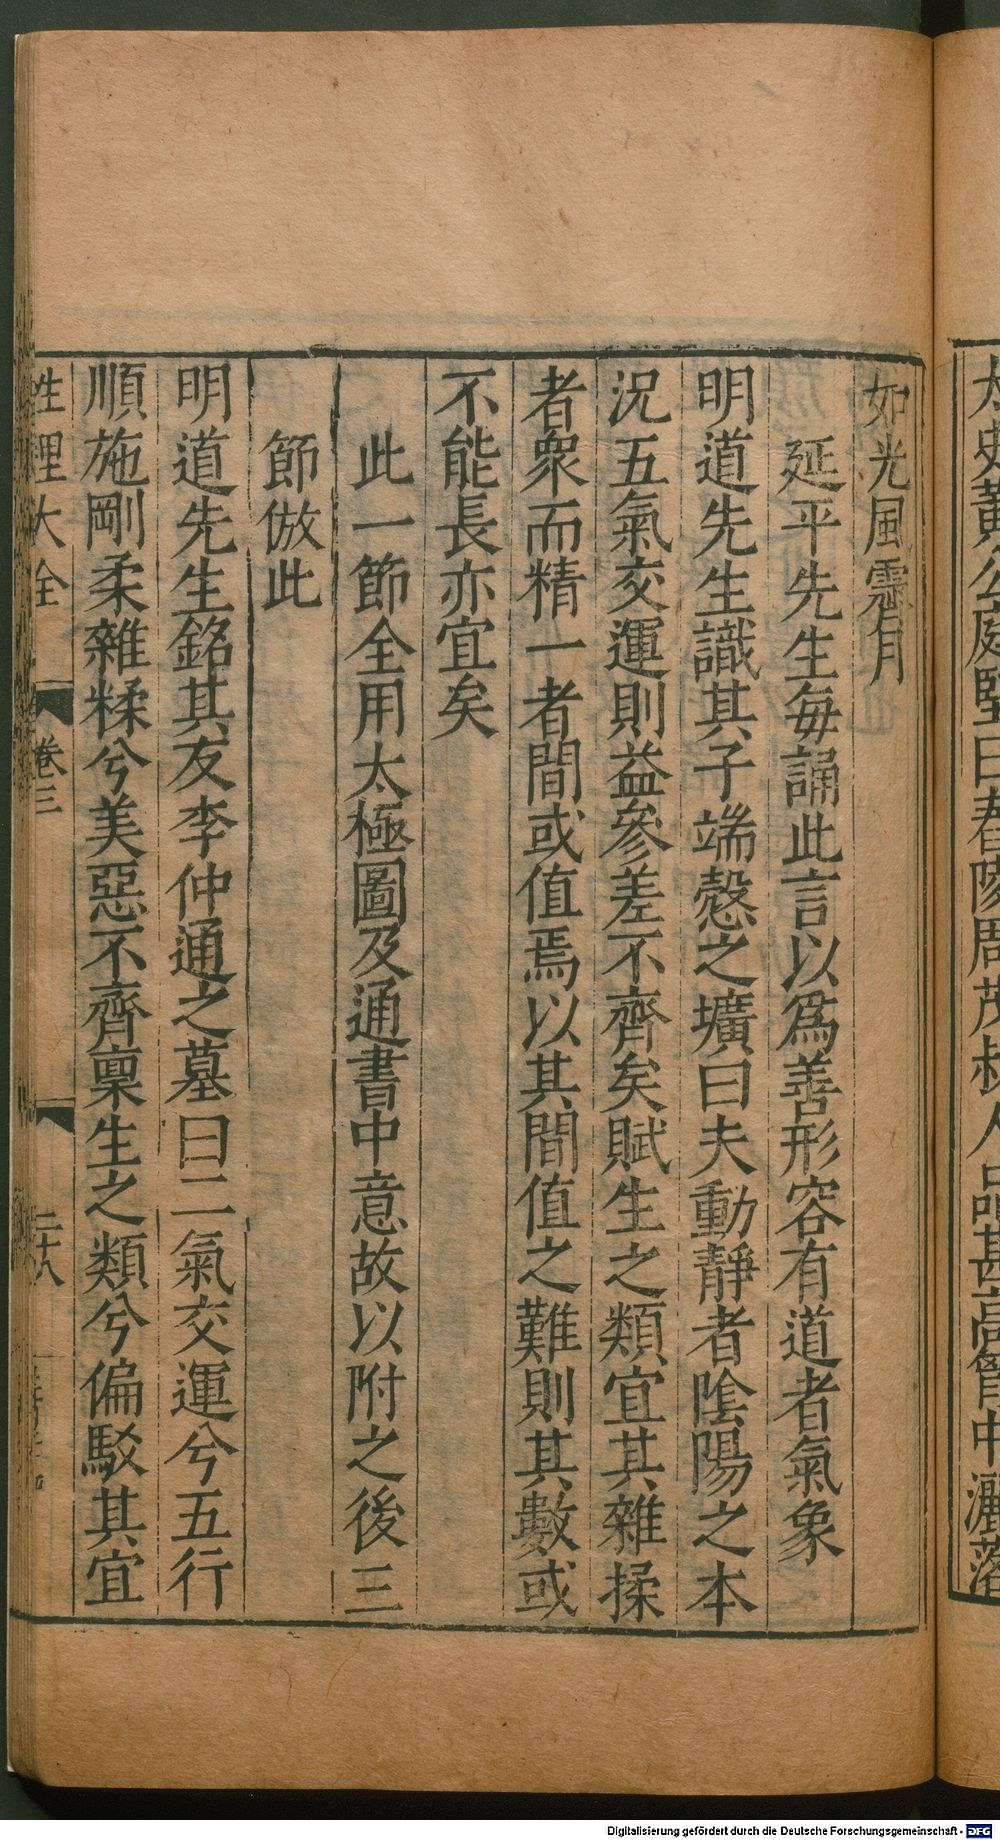 太史黃公庭堅曰舂陵周茂叔人品甚高胷中灑落
如光風霽月
延平先生每誦此言以爲善形容有道者氣象
明道先生識其子端慤之壙曰夫動靜者陰陽之本
況五氣交運則益參差不齊矣賦生之類宜其雜揉
者衆而精一者間或值焉以其間值之難則其數或
不能長亦宜矣
此一節全用太極圖及通書中意故以附之後三
節倣此
明道先生銘其友李仲通之墓曰二氣交運兮五行
順施剛柔雜糅兮美惡不齊稟生之類兮偏駁其宜
性理大全 卷三 二十八
Digitalisierung gefördert durch die Deutsche Forschungsgemeinschaft - DFG